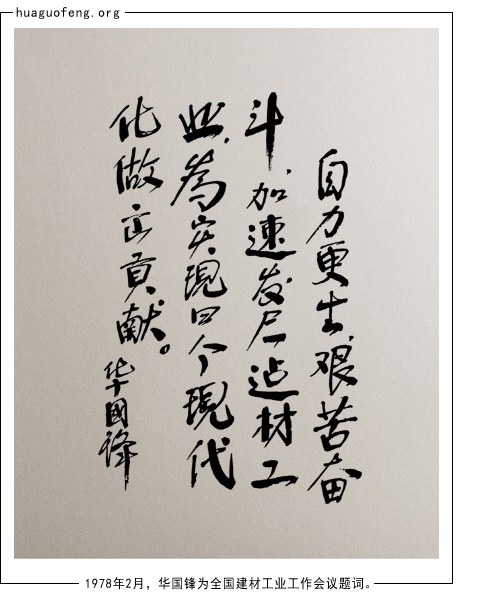 huaguofeng.org
自力更生,艰苦奋
斗,加速发展建材工
业,為实現四个現代
化做出貢献。
华國锋
1978年2月，华国锋为全国建材工业工作会议题词。